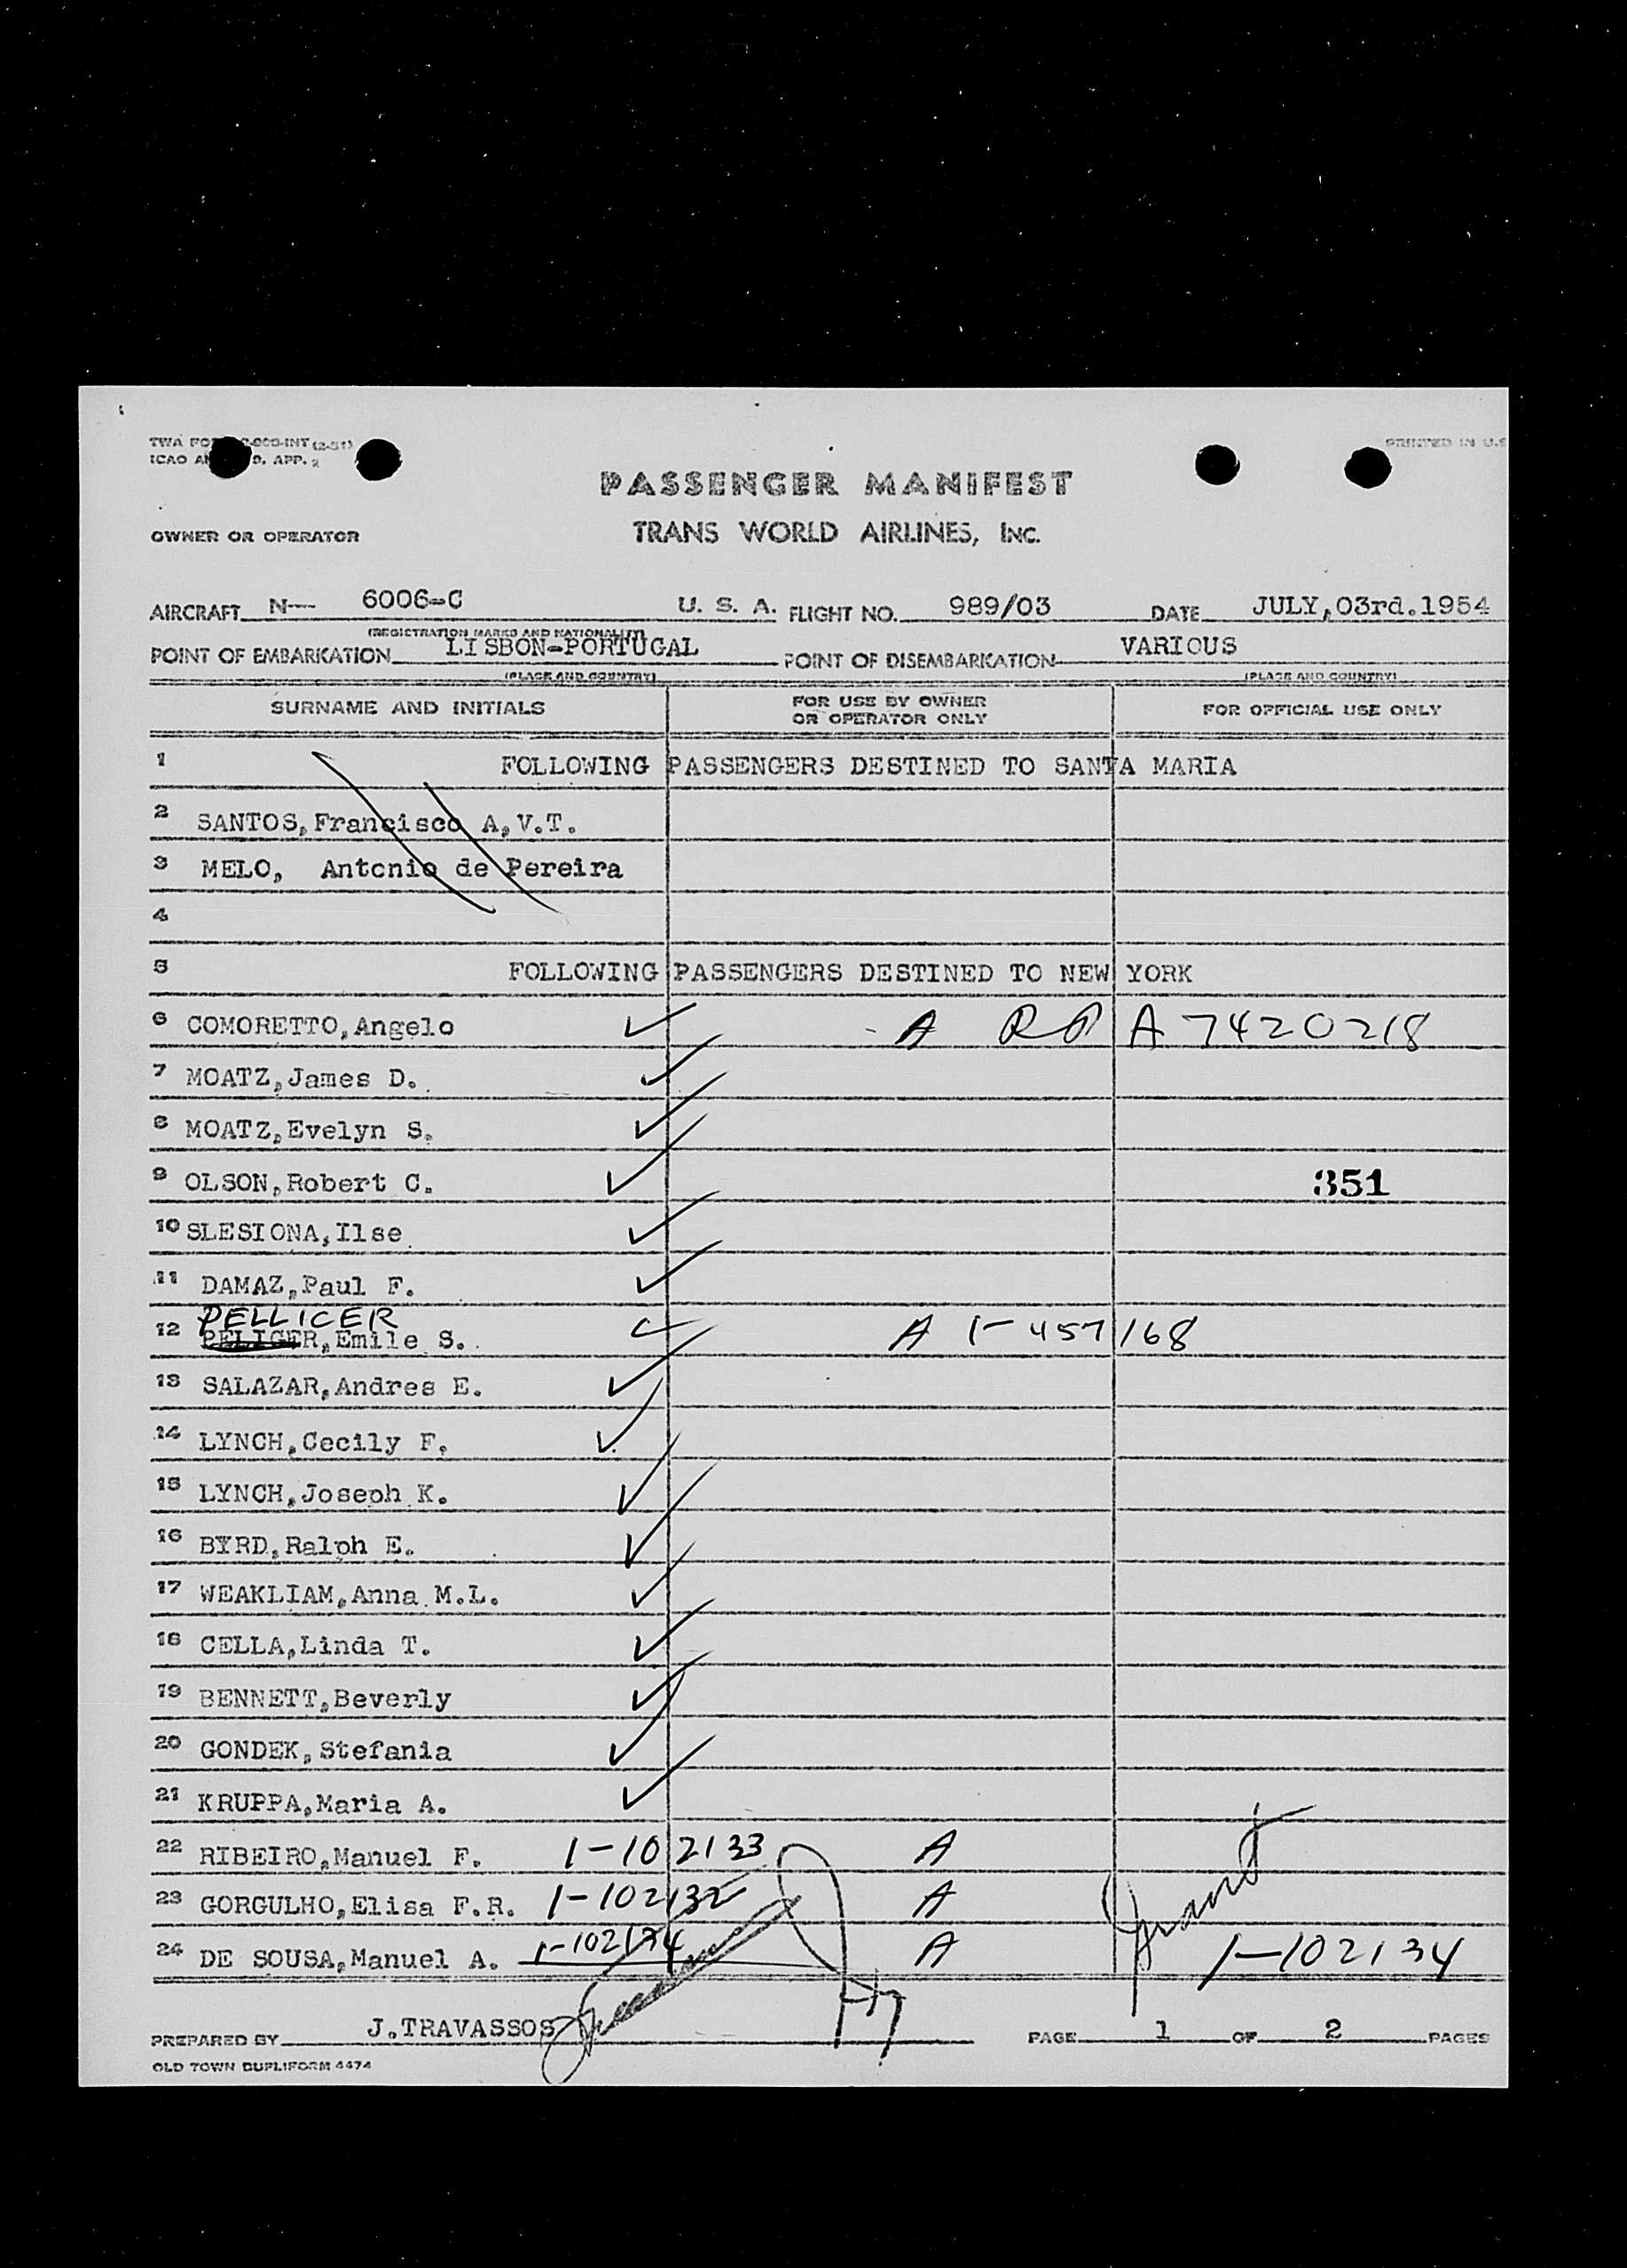 TWA FO 000-INT (2-51)
ICAO AN D. APP. 2
PRINTED IN U.S
PASSENGER MANIFEST
OWNER OR OPERATOR TRANS WORLD AIRLINES, INC.
AIRCRAFT N— 6006-C U. S. A. FLIGHT NO. 989/03 DATE JULY,03rd.1954
(REGISTRATION MARKS AND NATIONALITY)
POINT OF EMBARKATION LISBON-PORTUGAL POINT OF DISEMBARKATION VARIOUS
(PLACE AND COUNTRY) (PLACE AND COUNTRY)
SURNAME AND INITIALS FOR USE BY OWNER OR OPERATOR ONLY FOR OFFICIAL USE ONLY
1 FOLLOWING PASSENGERS DESTINED TO SANTA MARIA
2 SANTOS,Francisco A,V.T.
3 MELO, Antonio de Pereira
4
5 FOLLOWING PASSENGERS DESTINED TO NEW YORK
6 COMORETTO,Angelo ✓ A RP A 7420218
7 MOATZ,James D. ✓
8 MOATZ,Evelyn S. ✓
9 OLSON,Robert C. ✓ 351
10 SLESIONA,Ilse ✓
11 DAMAZ,Paul F. ✓
PELLICER
12 PELIGER,Emile S. ✓ A 1-457168
13 SALAZAR,Andres E. ✓
14 LYNCH,Cecily F. ✓
15 LYNCH,Joseph K. ✓
16 BYRD,Ralph E. ✓
17 WEAKLIAM,Anna M.L. ✓
18 CELLA,Linda T. ✓
19 BENNETT,Beverly ✓
20 GONDEK,Stefania ✓
21 KRUPPA,Maria A. ✓
22 RIBEIRO,Manuel F. 1-102133 A
23 GORGULHO,Elisa F.R. 1-102132 A
24 DE SOUSA,Manuel A. 1-102134 A 1-102134
PREPARED BY J.TRAVASSOS PAGE 1 OF 2 PAGES
OLD TOWN DUPLIFORM 4474